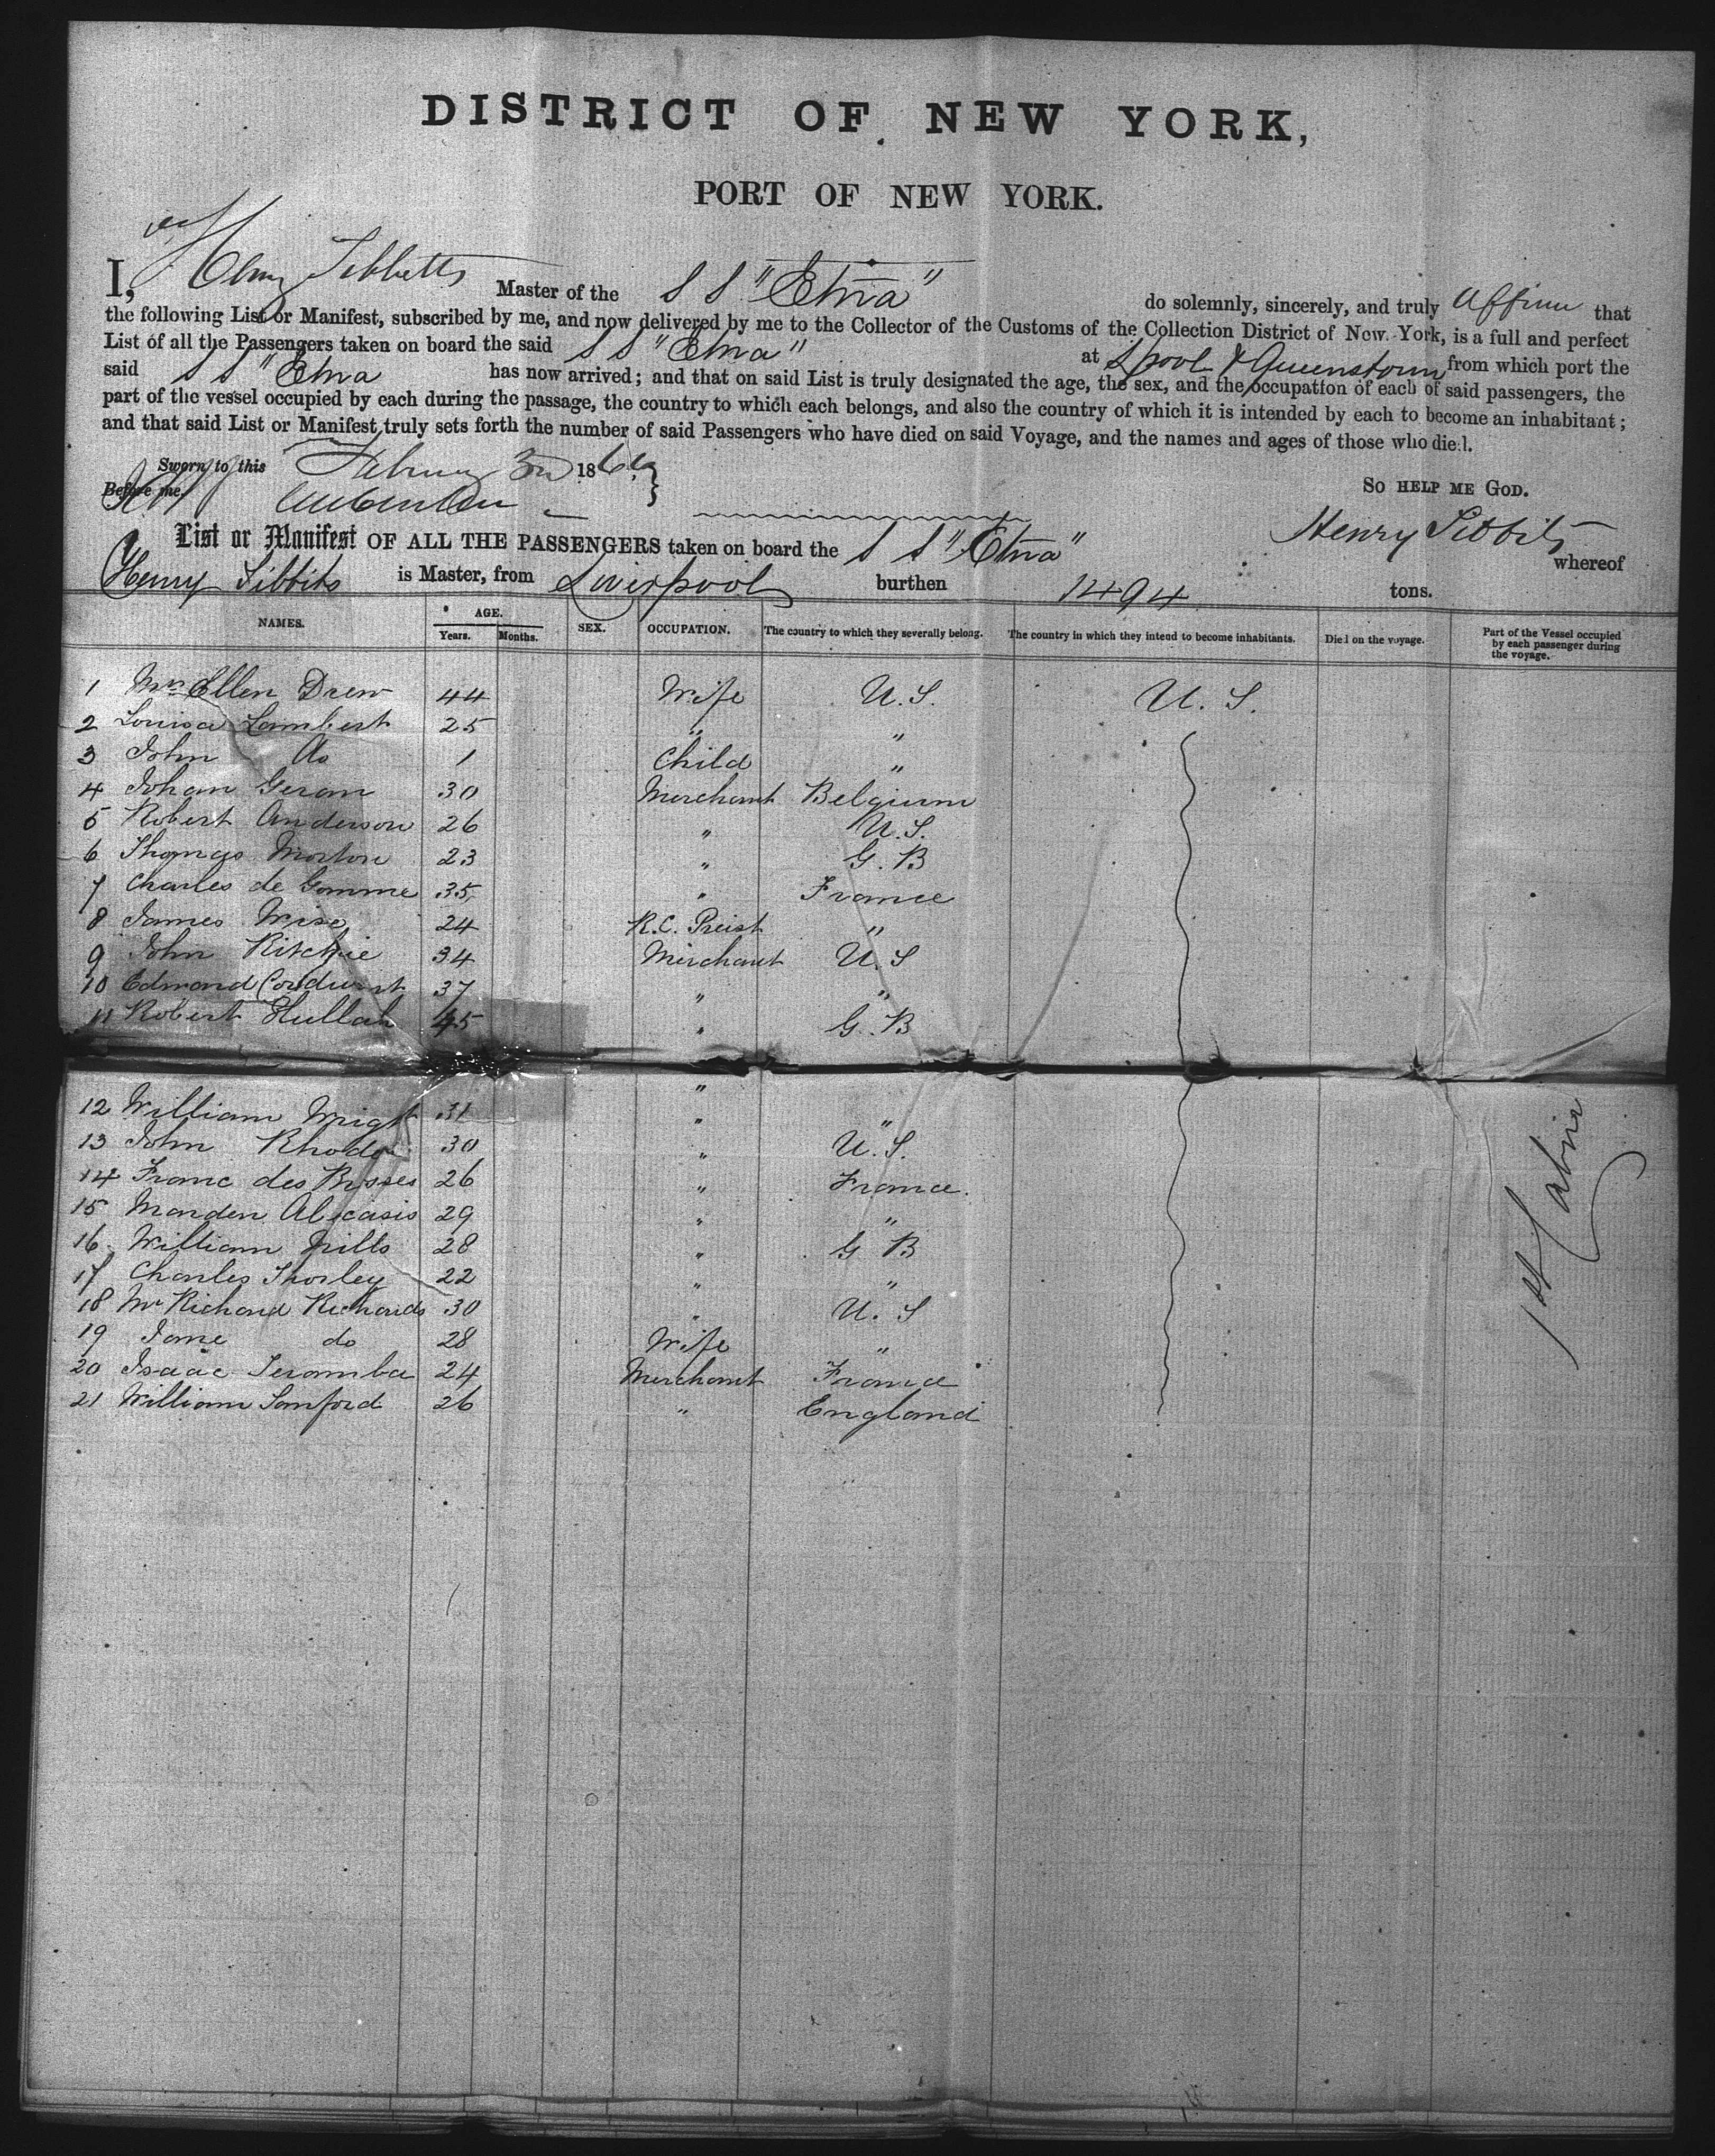 DISTRICT OF NEW YORK,
PORT OF NEW YORK.
I, Henry Tibbetts Master of the S S "Etna" do solemnly, sincerely, and truly affirm that
the following List or Manifest, subscribed by me, and now delivered by me to the Collector of the Customs of the Collection District of New-York, is a full and perfect
List of all the Passengers taken on board the said S S "Etna" at Lpool & Queenstown from which port the
said S S "Etna has now arrived; and that on said List is truly designated the age, the sex, and the occupation of each of said passengers, the
part of the vessel occupied by each during the passage, the country to which each belongs, and also the country of which it is intended by each to become an inhabitant;
and that said List or Manifest truly sets forth the number of said Passengers who have died on said Voyage, and the names and ages of those who died.
Sworn to this February 3 186
Before me, So HELP ME GOD.
Henry Tibbits
List or Manifest OF ALL THE PASSENGERS taken on board the S S "Etna" whereof
Henry Tibbits is Master, from Liverpool burthen 1494 tons.
NAMES. AGE. Years. Months. SEX. OCCUPATION. The country to which they severally belong. The country in which they intend to become inhabitants. Died on the voyage. Part of the Vessel occupied by each passenger during the voyage.
1 Mrs Ellen Drew 44 Wife U.S. U.S.
2 Louisa Lambert 25 " "
3 John Do 1 Child "
4 Johan Geran 30 Merchant Belgium
5 Robert Anderson 26 " U.S.
6 Thomas Morton 23 " G.B
7 Charles de Gomme 35 " France
8 James Wise 24 R.C. Preist "
9 John Ritchie 34 Merchant U.S
10 Edmond 37 " "
11 Robert Hullah 45 " G.B
"
12 William Wright 31 " "
13 John Rhode 30 " U.S.
14 Franc des Bisses 26 " France.
15 Manden 29 " "
16 William Mills 28 " G B
17 Charles Thorley 22 " "
18 Mr Richard Richards 30 " U.S
19 Jane do 28 Wife "
20 Isaac Teramba 24 Merchant France
21 William Sanford 26 " England
1st Cabin